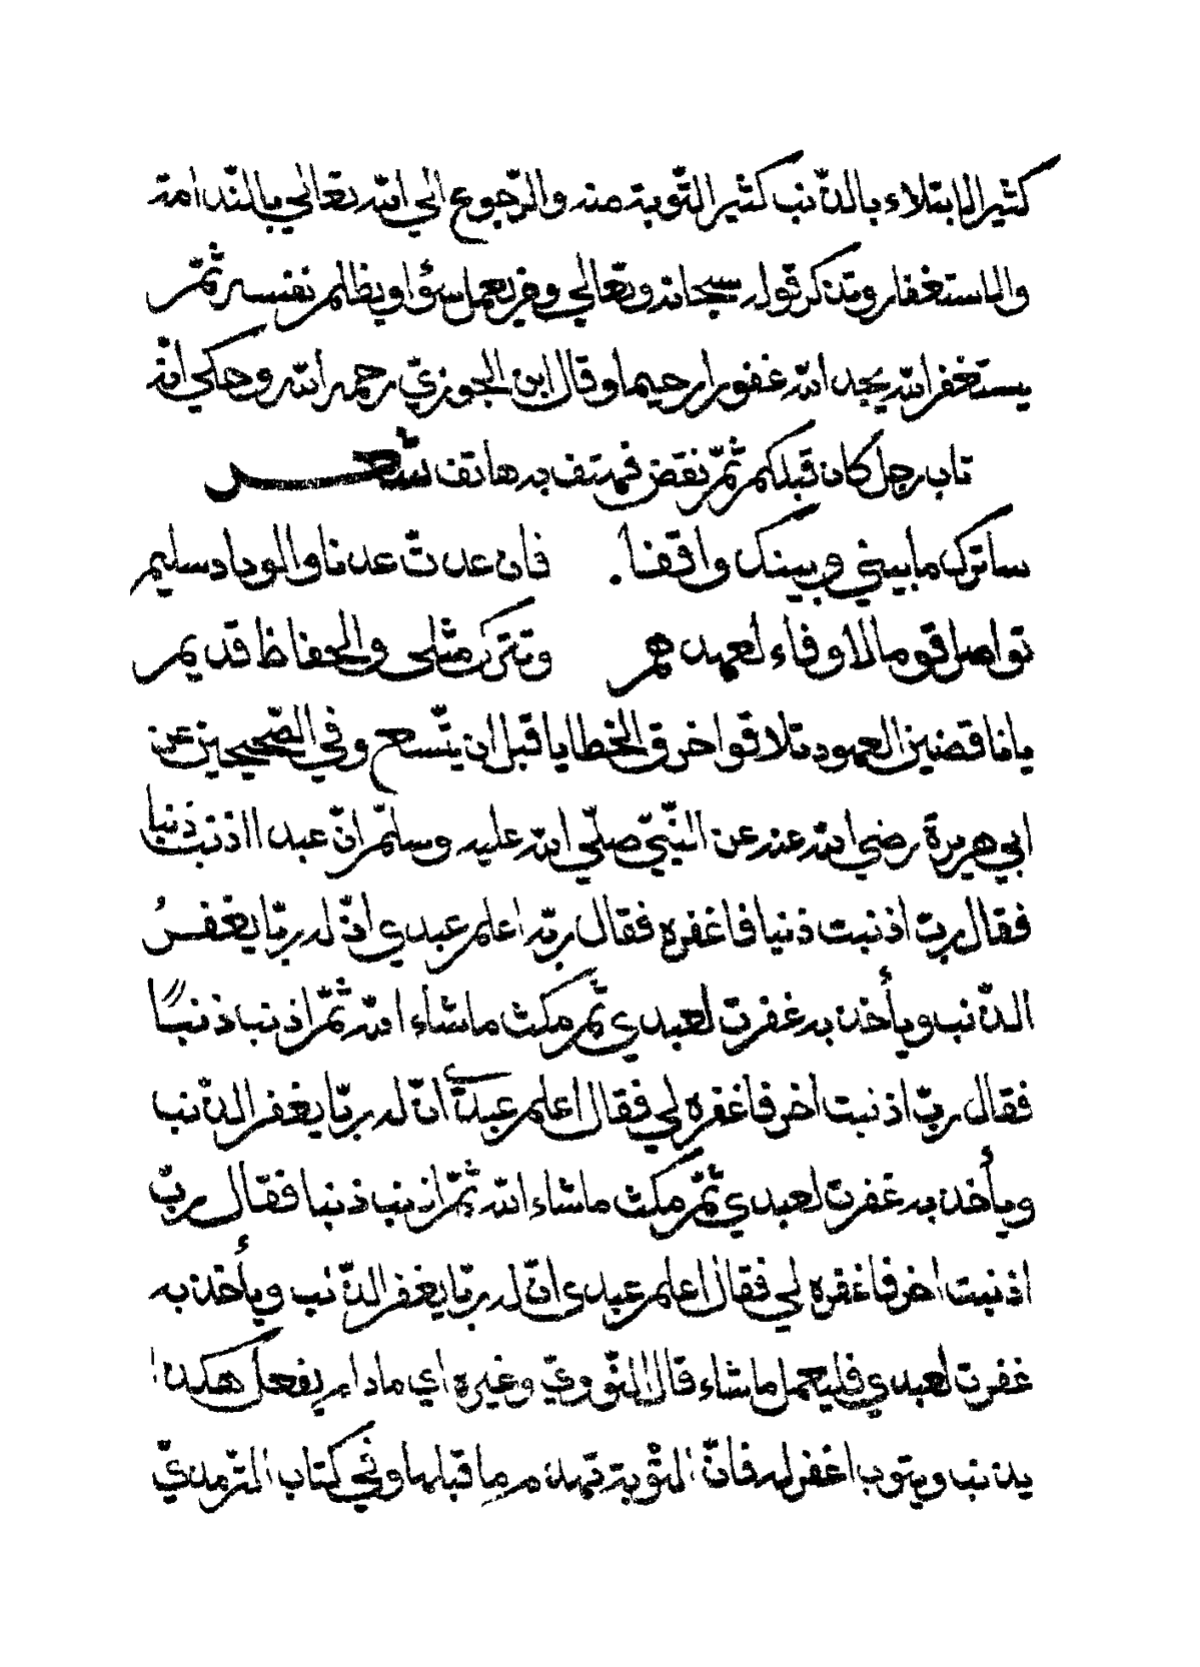 كثير الابتلاء بالذّنب كثير التّوبة منه والرّجوع الي الله تعالي بالنّدامة
والاستغفار وتذكر قوله سبحانه وتعالي ومن يعمل سؤا او يظلم نفسه ثمّ
يستغفر الله يجد الله غفورا رحيما وقال ابن الجوزيّ رحمه الله وحكي انّه
تاب رجل كان قبلكم ثمّ نقض فهتف به هاتف شعر
ساترك ما بيني وبينك واقفا . فان عدت عدنا والوداد سليم
تواصل قوما لا وفاء لعهدهم وتترك مثلي والحفاظ قديم
يا ناقضين العهود تلاقوا خرق الخطايا قبل ان يتّسع وفي الصّحيحين عن
ابي هريرة رضي الله عنه عن النّبيّ صلّي الله عليه وسلّم انّ عبدا اذنب ذنبا
فقال ربّ اذنبت ذنبا فاغفره فقال ربّه اعلم عبدي انّ له ربّا يغفرُ
الذّنب ويأخذ به غفرت لعبدي ثمّ مكث ماشاء الله ثمّ اذنب ذنبًا
فقال ربّ اذنبت اخر فاغفره لي فقال اعلم عبدي انّ له ربّا يغفر الذّنب
ويأخذ به غفرت لعبدي ثمّ مكث ماشاء الله ثمّ اذنب ذنبا فقال ربّ
اذنبت اخر فاغفره لي فقال اعلم عبدي انّ له ربّا يغفر الذّنب ويأخذ به
غفرت لعبدي فليعمل ماشاء قال النّوويّ وغيره اي مادام يفعل هكذا
يذنب ويتوب اغفر له فانّ التّوبة تهدم ما قبلها وفي كتاب الترمذيّ